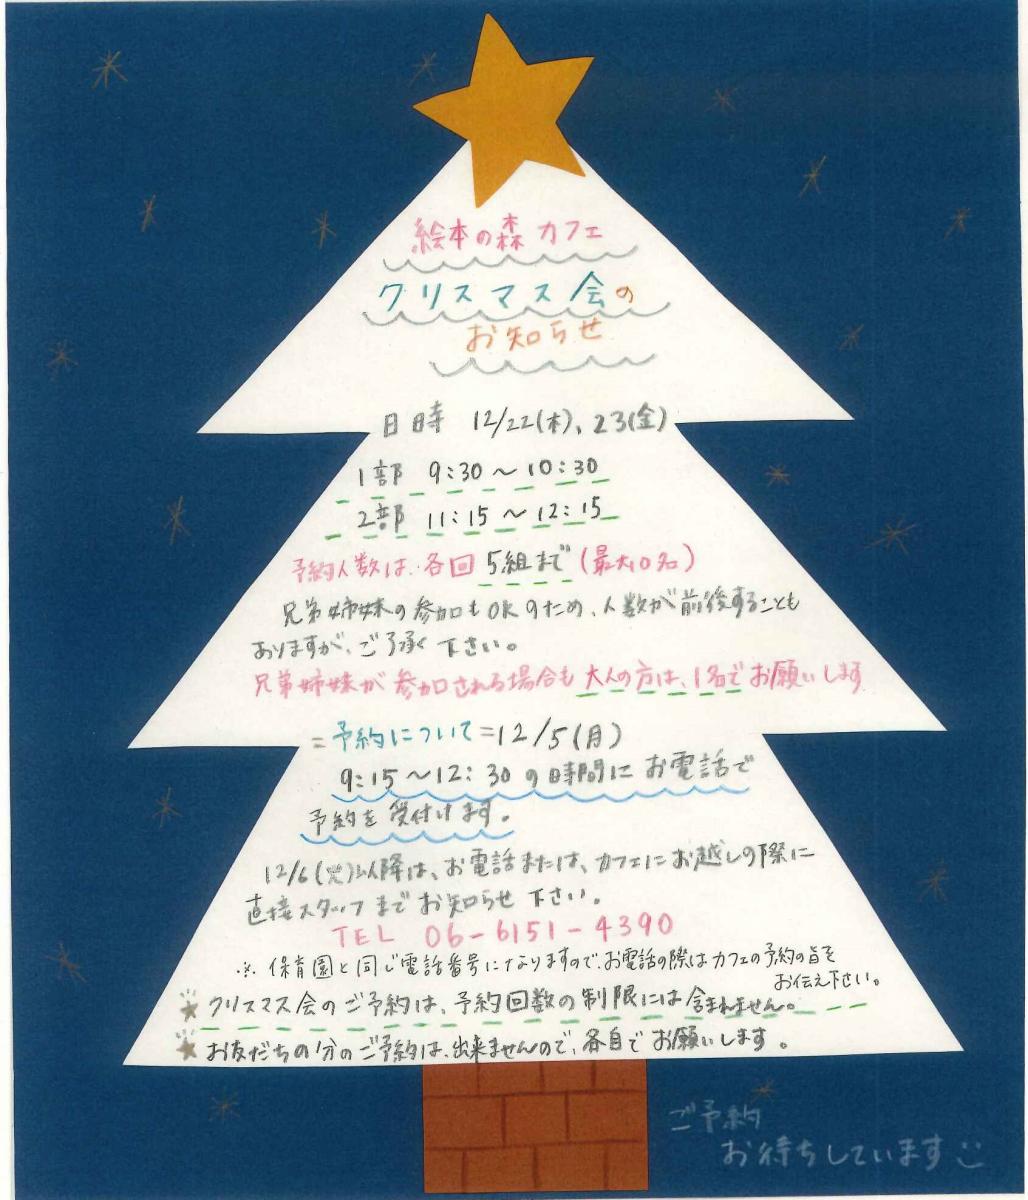 絵本の森カフェ
クリスマス会の
お知らせ
日時 12/22(木)、23(金)
1部 9:30〜10:30
2部 11:15〜12:15
予約人数は、各回5組まで(最大10名)
兄弟姉妹の参加もOKのため、人数が前後することも
ありますが、ご了承下さい。
兄弟姉妹が参加される場合も大人の方は、1名でお願いします
=予約について=12/5(月)
9:15〜12:30の時間にお電話で
予約を受付けます。
12/6(火)以降は、お電話または、カフェにお越しの際に
直接スタッフまでお知らせ下さい。
TEL 06-6151-4390
※保育園と同じ電話番号になりますので、お電話の際はカフェの予約の旨を
お伝え下さい。
★クリスマス会のご予約は、予約回数の制限には含まれません。
★お友だちの分のご予約は、出来ませんので、各自でお願いします。
ご予約
お待ちしています